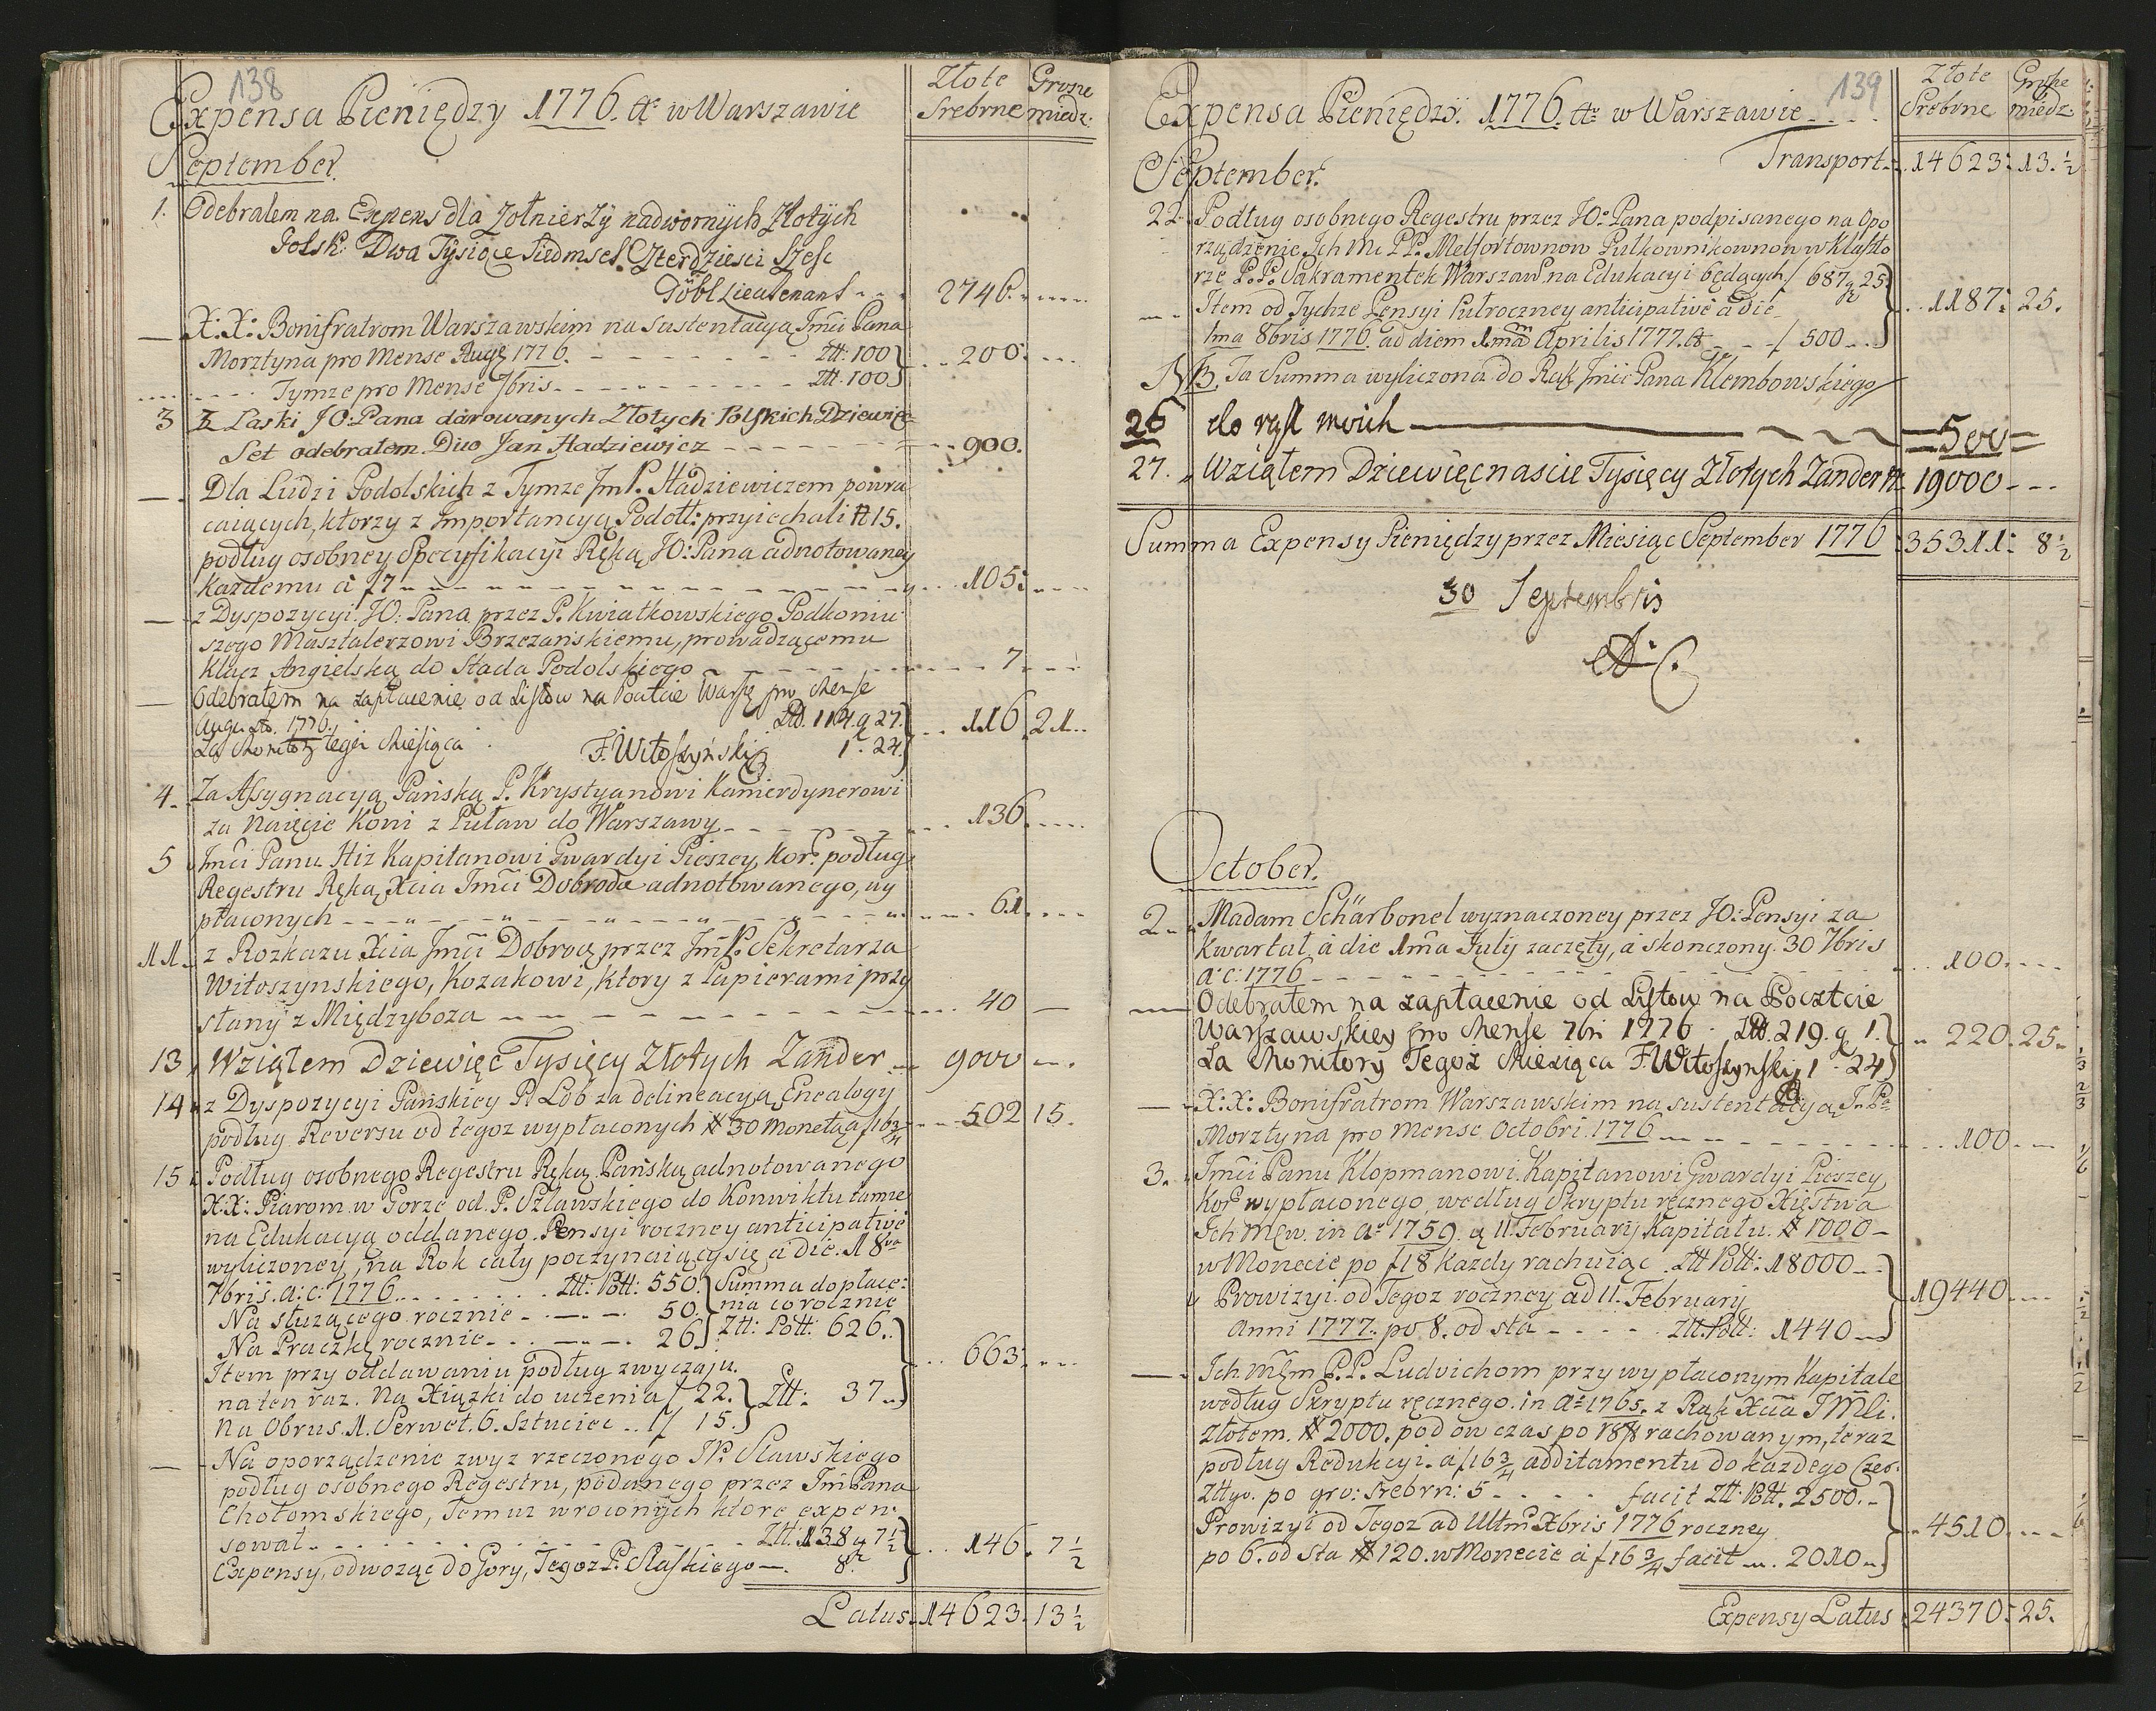 138
Expensa Pieniędzy 1776. Ao w Warszawie
Złote Srebrne
Grosze miedz:
September.
1. Odebrałem na Expens dla Zołnierzÿ nadwornÿch Złotÿch
Polsk: Dwa Tÿsiące Siedmset Czterdziesci Szesc
Döbl Lieutenant - - 2746.
— X: X: Bonifratrom Warszawskim na Sustentacyą Jmći Pana
Morztyna pro Mense Augę 1776. - - - Złt: 100 } 200.
Tymze pro Mense 7bris - - - Złt. 100
3 Z Łaski JO: Pana darowanych Złotych Polskich Dziewięć
Set odebrałem. Duo Jan Hadziewicz - - - 900.
— Dla Ludzi Podolskich z Tymze Jm P. Hadziewiczem powra
caiących, ktorzy z Importancyą Podoll: przyiechali N 15.
podług osobney Specyfikacyi Ręką JO: Pana adnotowaney
Kazdemu a f 7 - - - 105:
— z Dyspozycyi JO: Pana przez P. Kwiatkowskiego Podkoniu
szego Masztalerzowi Brzezanskiemu, prowadzącemu
Klacz Angielską do Stada Podolskiego - - - 7.
— Odebrałem na zapłacenie od Listow na Poczcie Warsz pro Mense
Augusto. 1776. Złt. 114. g 27. } 116. 21.
Za Monitory tegoż Miesiąca F. Witoszyński 1. 24
4. Za Assygnacyą Pańską P. Krystyanowi Kamerdynerowi
za Naięcie Koni z Puław do Warszawy - - - 136.
5 Jmći Panu Hiz Kapitanowi Gwardyi Pieszey, Kor: podług
Regestru Ręką Xcia Jmći Dobrodz adnotowanego, wy
płaconych - - - 61.
11. z Rozkazu Xcia Jmći Dobrodz przez Jm P. Sekretarza
Witoszynskiego, Kozakowi, ktory z Papierami przy
słany z Międzyboza - - - 40 —
13, Wziąłem Dziewięć Tysięcy Złotych Zander - - 9000
14 z Dyspozycyi Pańskiey P. Löb za delineacyą Genealogy
podług Reversu od tegoz wypłaconych # 30 Monetą a f 16 3/4 - - 502 15.
15 Podług osobnego Regestru Ręką Pańską adnotowanego
X: X: Piarom w Gorze od P. Szlawskiego do Konwiktu tamże
na Edukacyą oddanego Pensyi roczney anticipativè
wyliczoney, na Rok cały poczynaiący się à die 18va
7bris. a: c: 1776. . . . Złt: Poll: 550. } Summa do płace:
Na służącego rocznie - - - 50. nia co rocznie
Na Praczkę rocznie - - - 26 Złt: Poll: 626.
Item przy oddawaniu podług zwyczaju. } 663.
na ten raz. Na Xiązki do uczenia f 22. } Złt: 37
Na Obrus. 1. Serwet. 6. Sztuciec . . f 15.
— Na oporządzenie zwyz rzeczonego P. Sławskiego
podług osobnego Regestru, podanego przez Jm Pana
Chołomskiego, Temuz wroconych ktore expen
sował - - - Złt: 138 g 7 1/2 } 146. 7 1/2
Expensy, odwożąc do Gory, Tegoz P. Sławskiego —. 8.
Latus. 14623. 13 1/2
139
Expensa Pieniędzÿ. 1776. Ao w Warszawie
Złote Srebrne
Grosze miedz:
Transport. 14623: 13. 1/2
September.
22. Podług osobnego Regestru przez JO: Pana podpisanego na Opo
rządzenie Ich Mc PP. Melfortownow Pułkownikownow w Klaszto
rze P.P. Sakramentek Warszaw: na Edukacyi będących f 687 g 25 } 1187: 25.
— Item od Tychze Pensyi Pułroczney anticipativè a die
1ma 8bris 1776. ad diem 1mā Aprilis 1777. - - f 500
NB. Ta Summa wyliczona do Rąk Jmći Pana Klembowskiego
26 do rąk moich — 500
27. Wziąłem Dziewięcnascie Tysięcy Złotych Zander 19000
Summa Expensy Pieniędzy przez Miesiąc September 1776 35311: 8 1/2
30 Septembris
October.
2. Madam Schärbonel wyznaczoney przez JO: Pensyi za
Kwartał, à die 1mā Julÿ zaczęty, a skonczony 30 7bris
a: c: 1776 - - - 100.
— Odebrałem na zapłacenie od Listow na Poczcie
Warszawskiey pro Mense 7bri 1776. Złt. 219. g 1. } 220. 25
Za Monitory Tegoz Miesiąca F. Witoszynski 1. 24
— X: X: Bonifratrom Warszawskim na sustentacyą J. Pa
Morztyna pro Mense Octobri. 1776 - - - 100.
3. Jmći Panu Klopmanowi Kapitanowi Gwardyi Pieszey
Kor: wypłaconego, według Skryptu ręcznego Xięstwa
Ich Mcw. in Ao 1759. a 11. Februarÿ Kapitału. # 1000 -
w Monecie po f 18 kazdy rachuiąc. Złt Poll: 18000 } 19440
Prowizyi od Tegoz roczney ad 11. Februarÿ
Anni 1777. po 8. od sta - - - Złt. Poll: 1440
— Ich Mcm P.P. Ludvichom przy wypłaconym Kapitale
według Skryptu ręcznego in Ao 1765. z Rąk Xcia JMci.
złotem. # 2000. pod ow czas po 18 rachowanym, teraz
podług Redukcyi. a f 16 3/4 additamentu do kazdego Czer:
Złtgo. po gro: Srebrn: 5 - - - facit Złt. Poll. 2500.
Prowizyi od Tegoz ad Ultm Xbris 1776 roczney } 4510
po 6. od Sta # 120. w Monecie a f 16 3/4 facit 2010
Expensy Latus 24370: 25.